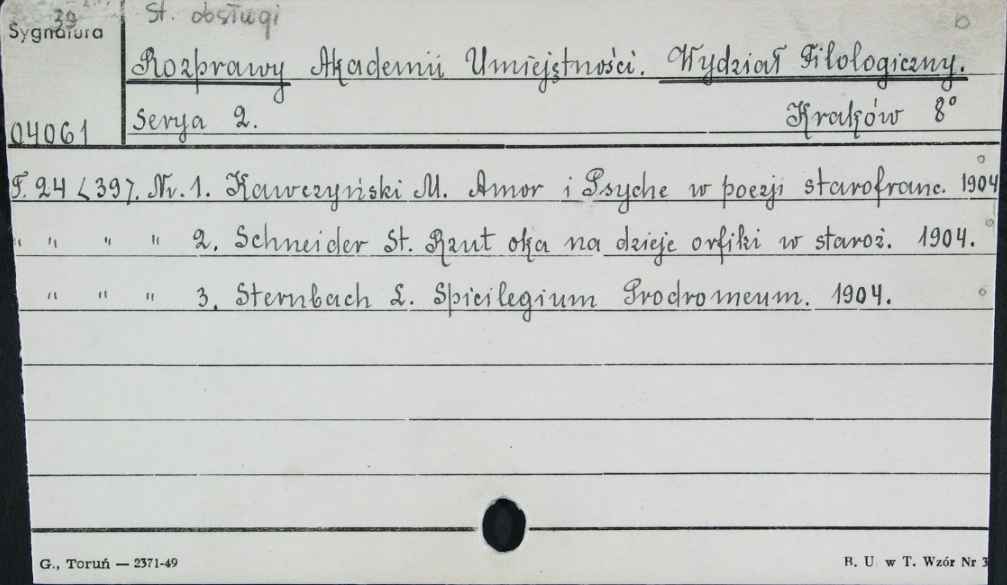 39 St. obsługi b
Sygnatura
Rozprawy Akademii Umiejętności. Wydział Filologiczny.
04061 Serya 2. Kraków 8°
T. 24 <39>. Nr. 1. Kawczyński M. Amor i Psyche w poezji starofranc. 1904
" " " " 2. Schneider St. Rzut oka na dzieje orfiki w staroż. 1904.
" " " 3. Sternbach L. Spicilegium Prodromeum. 1904.
G., Toruń — 2371-49 B. U. w T. Wzór Nr 3